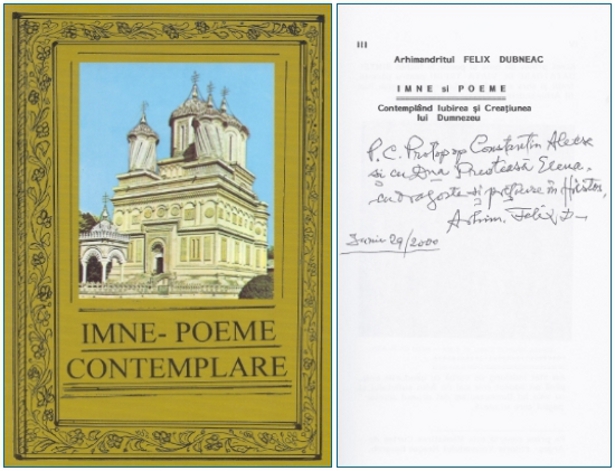 IMNE- POEME
CONTEMPLARE
III
Arhimandritul FELIX DUBNEAC
IMNE si POEME
Contemplând Iubirea şi Creaţiunea
lui Dumnezeu
P. C. Protopop Constantin Alecse
si cu Dna Preoteasă Elena,
cu dragoste si preţuire în Hristos,
Arhim. Felix D
Iunie 29/2000